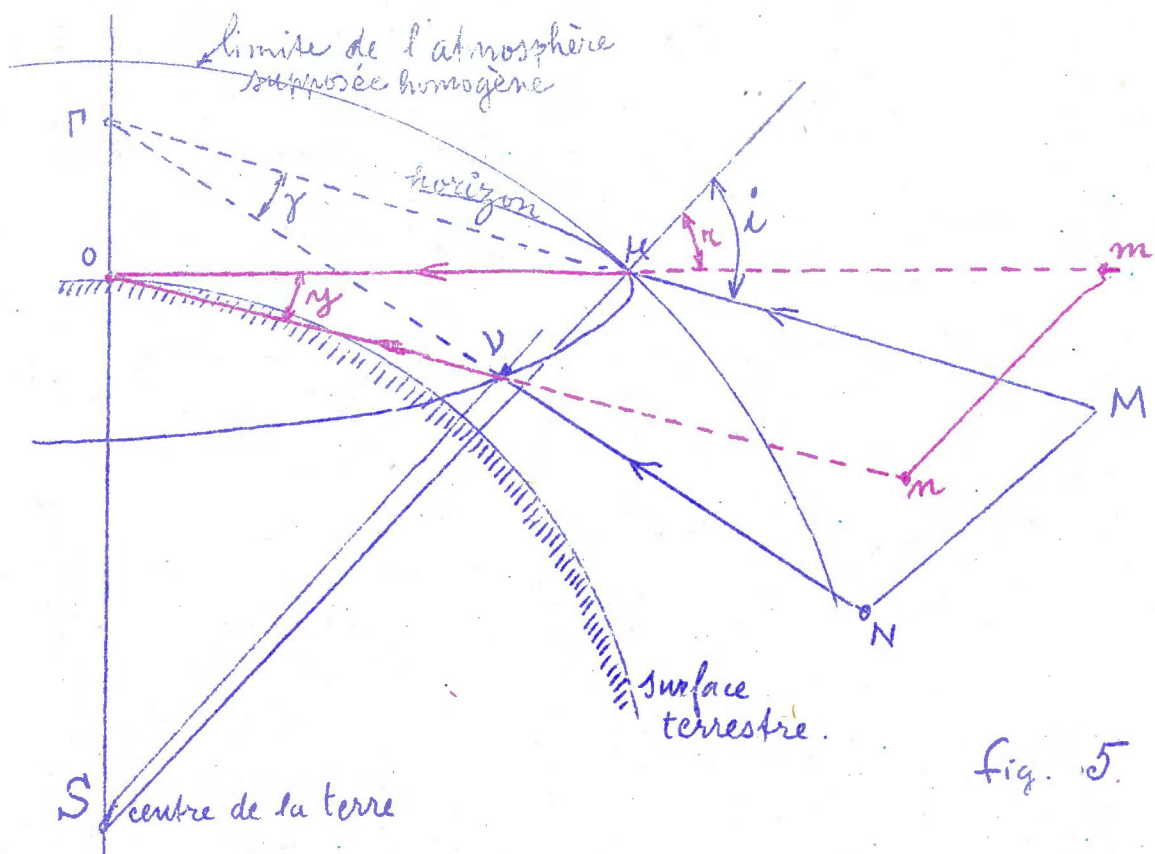 limite de l'atmosphère
supposée homogène
Γ
horizon
γ
μ
r
i
m
O
y
ν
M
n
N
surface
terrestre.
fig. 5.
S
centre de la terre